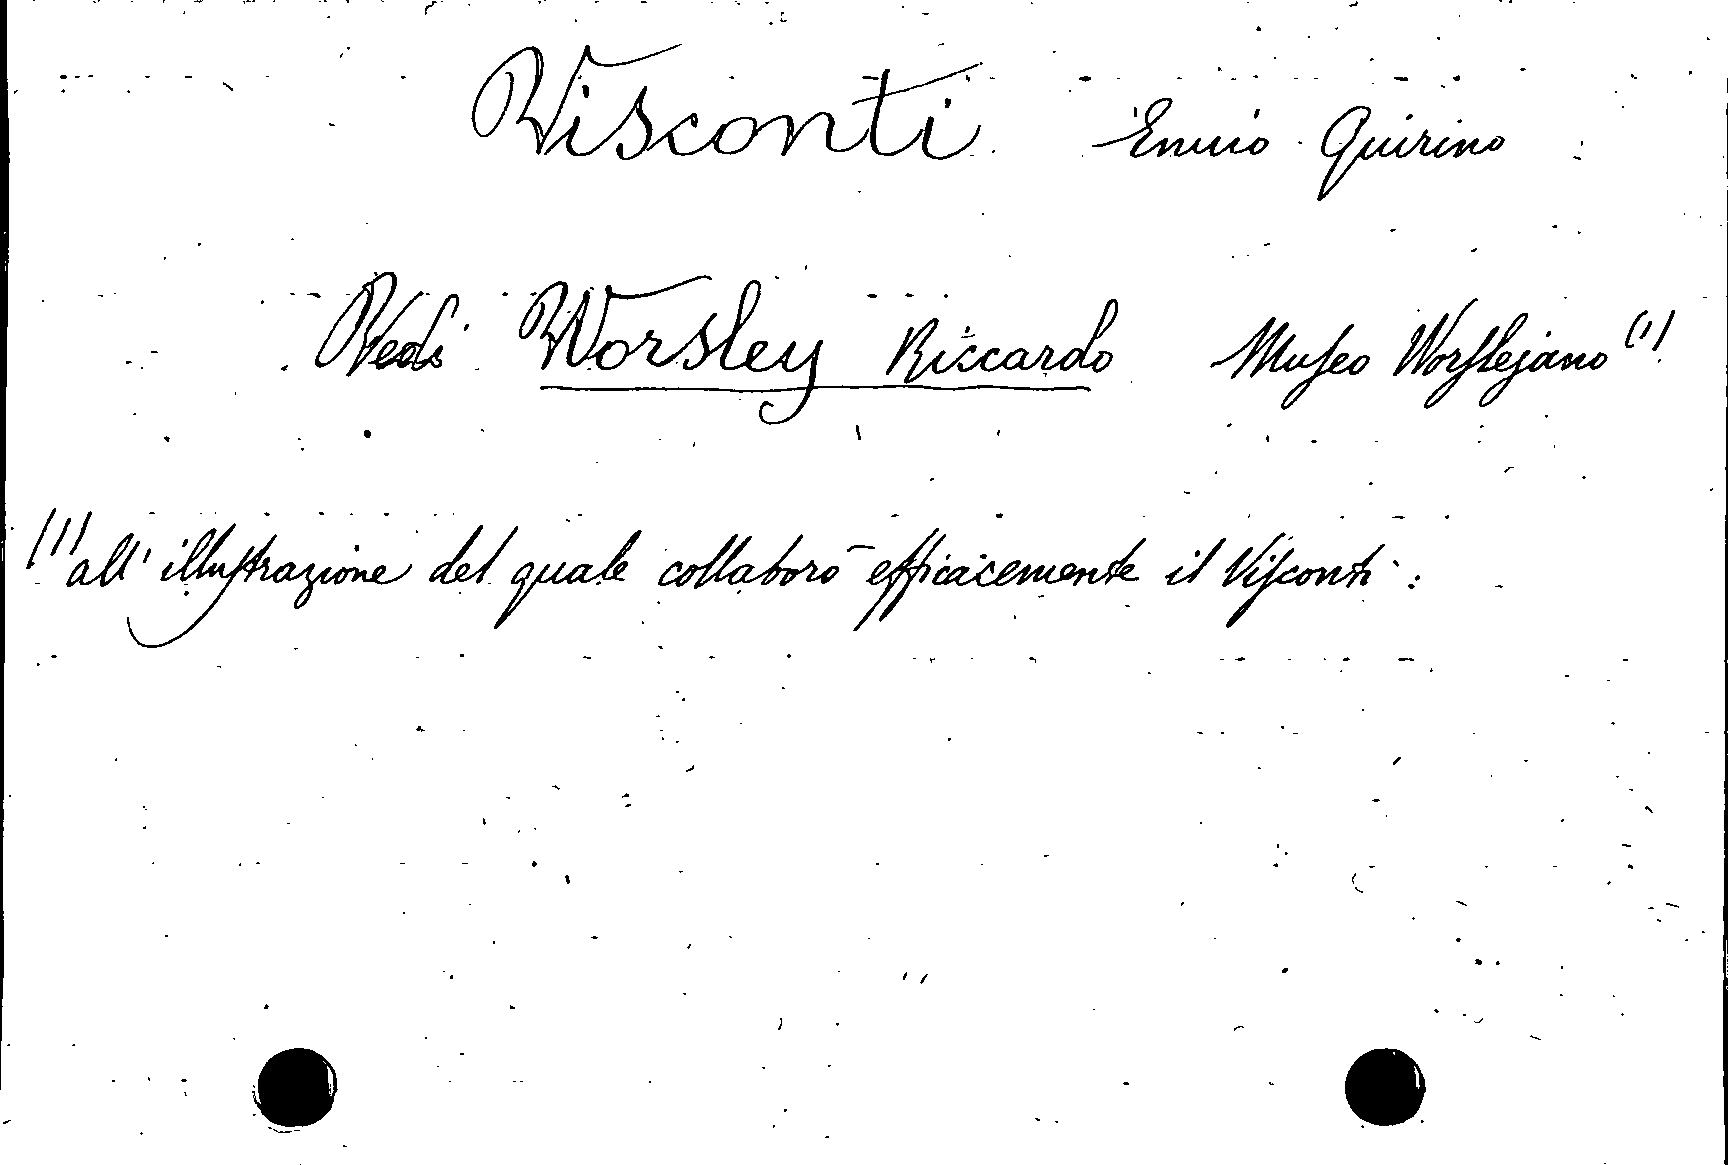 Visconti Ennio Quirino
Vedi Worsley Riccardo Museo Worslejano (1)
(1) all' illustrazione del quale collaborò efficacemente il Visconti.